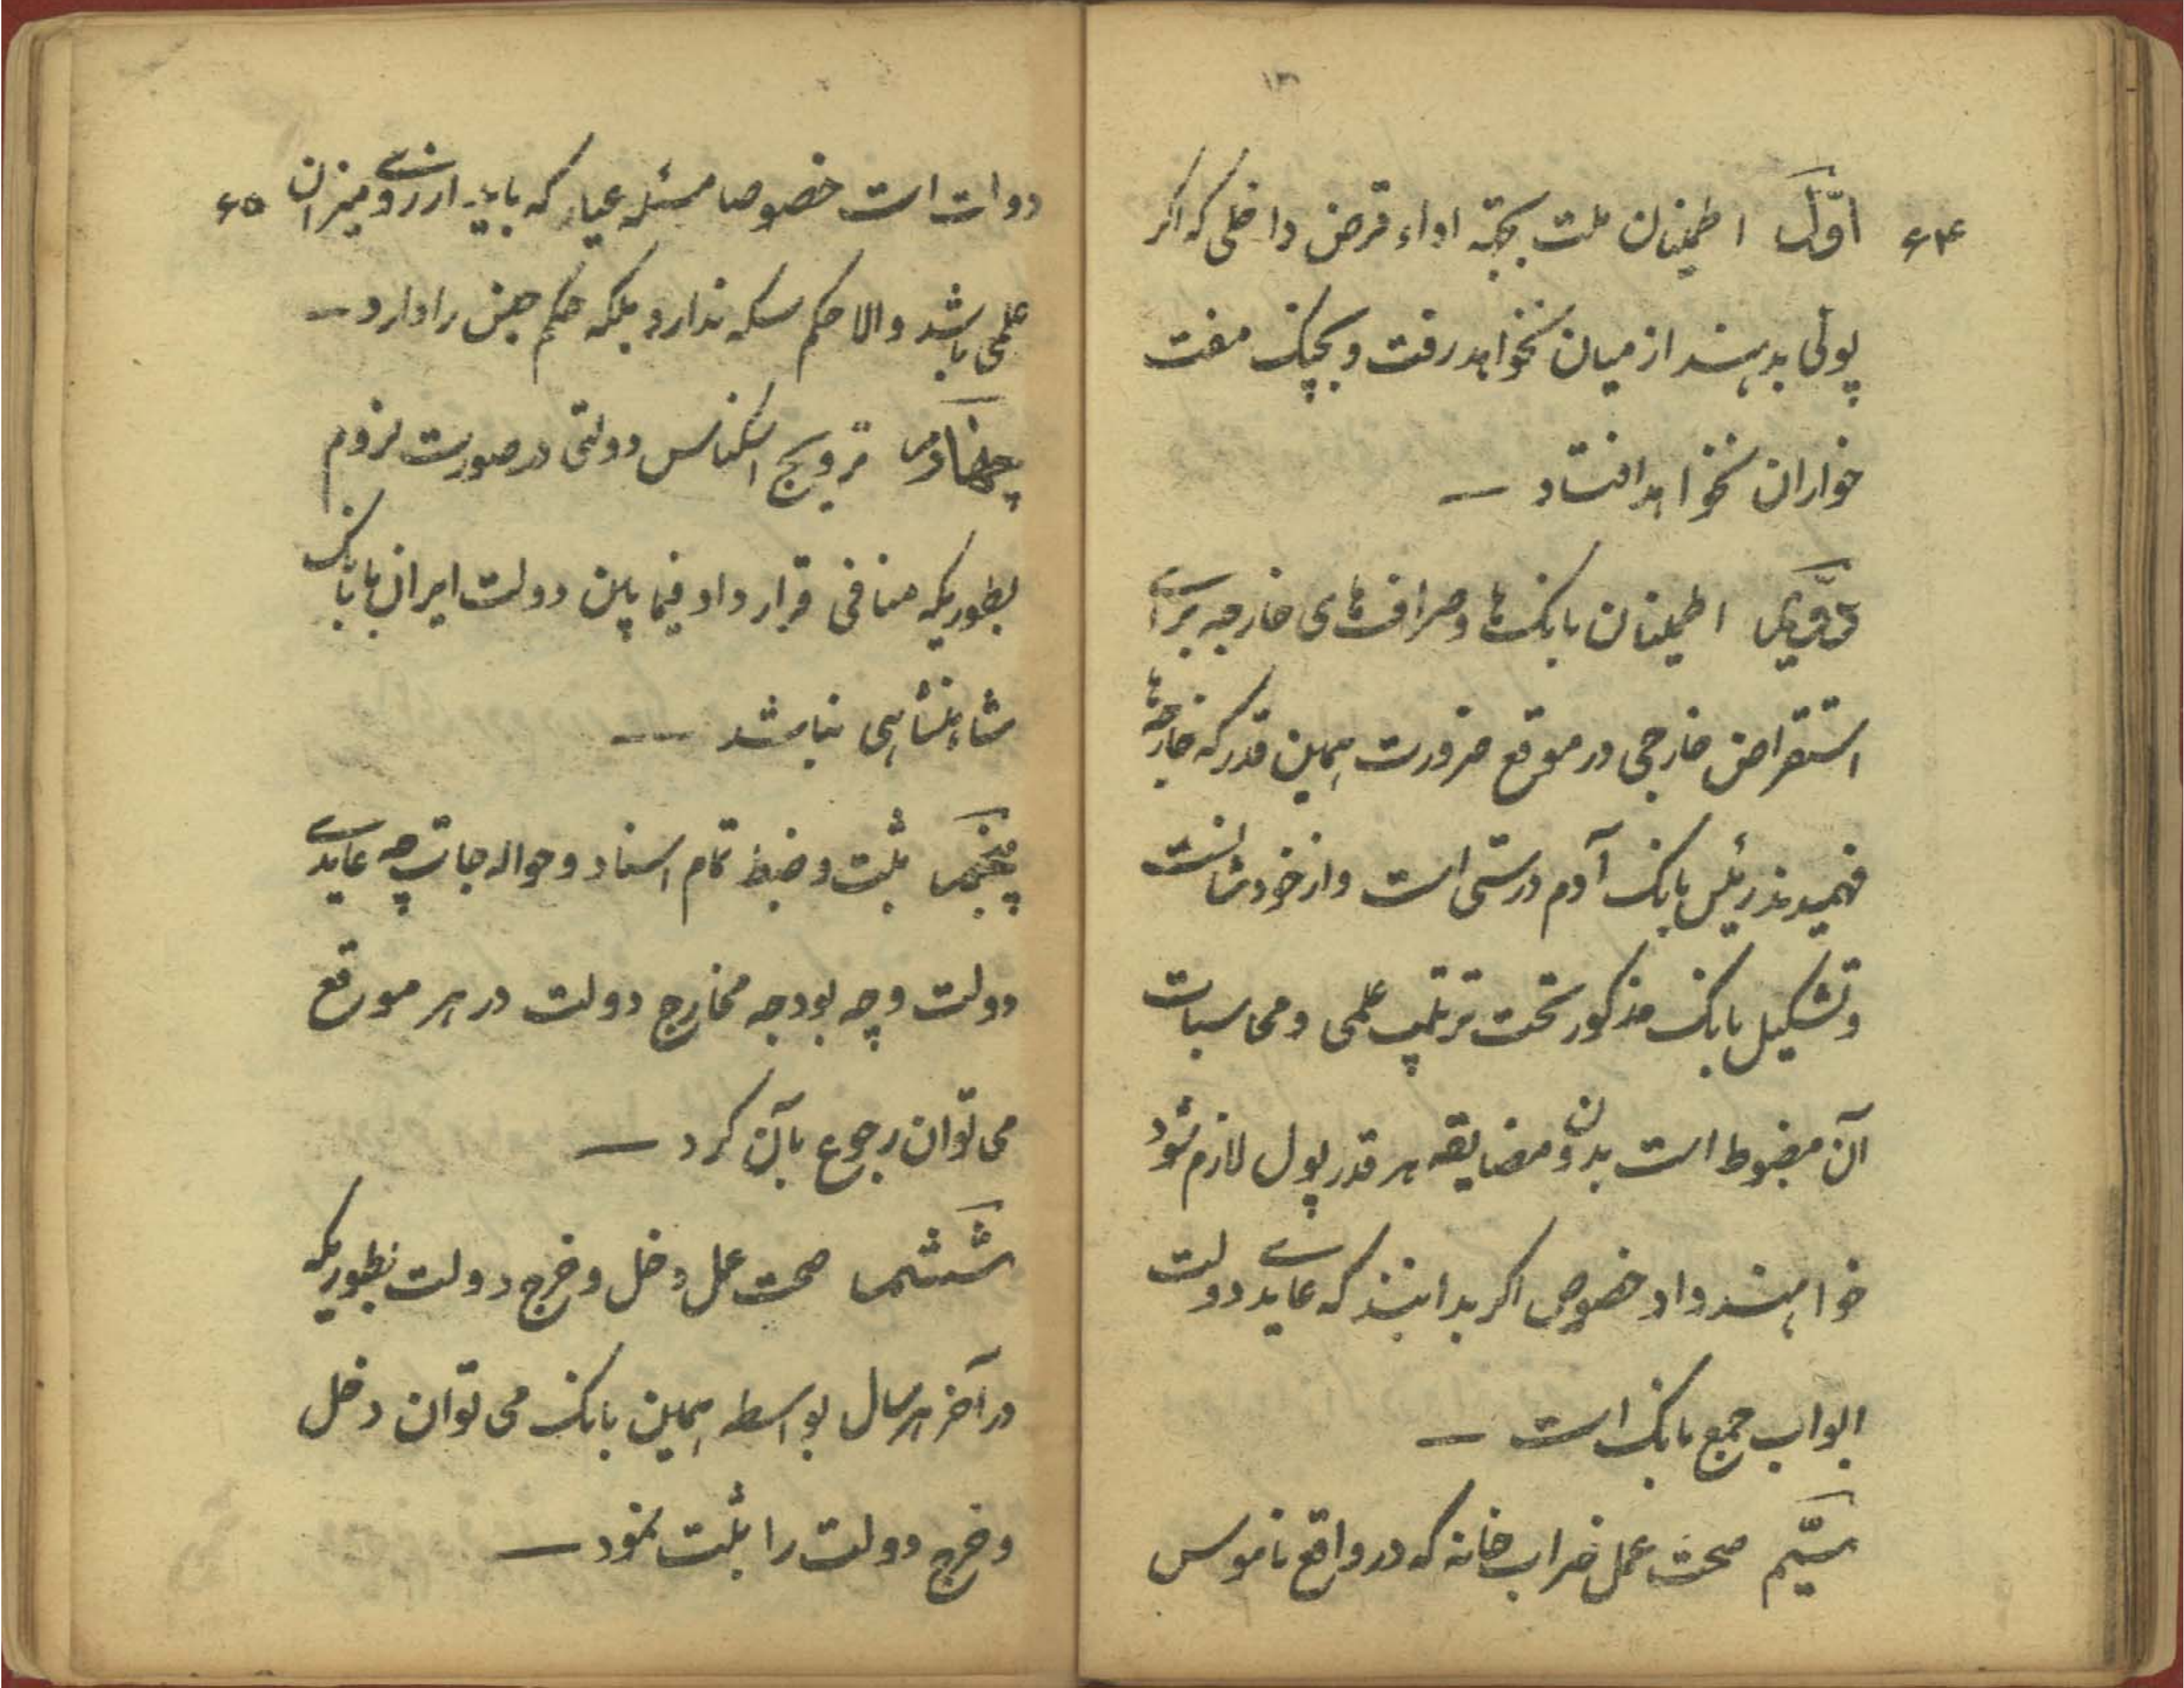 ۶۴
اوّل اطمینان ملت بجهته اداء قرض داخلی که اگر
پولی بدهند از میان نخواهد رفت و بچنک مفت
خواران نخواهد افتاد —
دوّیم اطمینان بانک‌ها و صراف‌های خارجه برای
استقراض خارجی در موقع ضرورت همین قدر که خارجه‌ها
فهمیدند رئیس بانک آدم درستی است و از خودشانست
و تشکیل بانک مذکور تحت ترتیب علمی و محاسبات
آن مضبوط است بدون مضایقه هر قدر پول لازم شود
خواهند داد خصوص اگر بدانند که عایدی دولت
ابواب جمع بانک است —
سیّم صحت عمل ضراب خانه که در واقع ناموس
۶۵
دولت است خصوصا مسئله عیار که باید از روی میزان
علمی باشد والا حکم سکه ندارد بلکه حکم جنس را دارد —
چهارم ترویج اسکناس دولتی در صورت لزوم
بطوریکه منافی قرارداد فیمابین دولت ایران با بانک
شاهنشاهی نباشد —
پنجم ثبت و ضبط تمام اسناد و حواله جات چه عایدی
دولت و چه بودجه مخارج دولت در هر موقع
می توان رجوع بآن کرد —
ششم صحت عمل دخل و خرج دولت بطوریکه
در آخر هر سال بواسطه همین بانک می توان دخل
و خرج دولت را ثبت نمود —